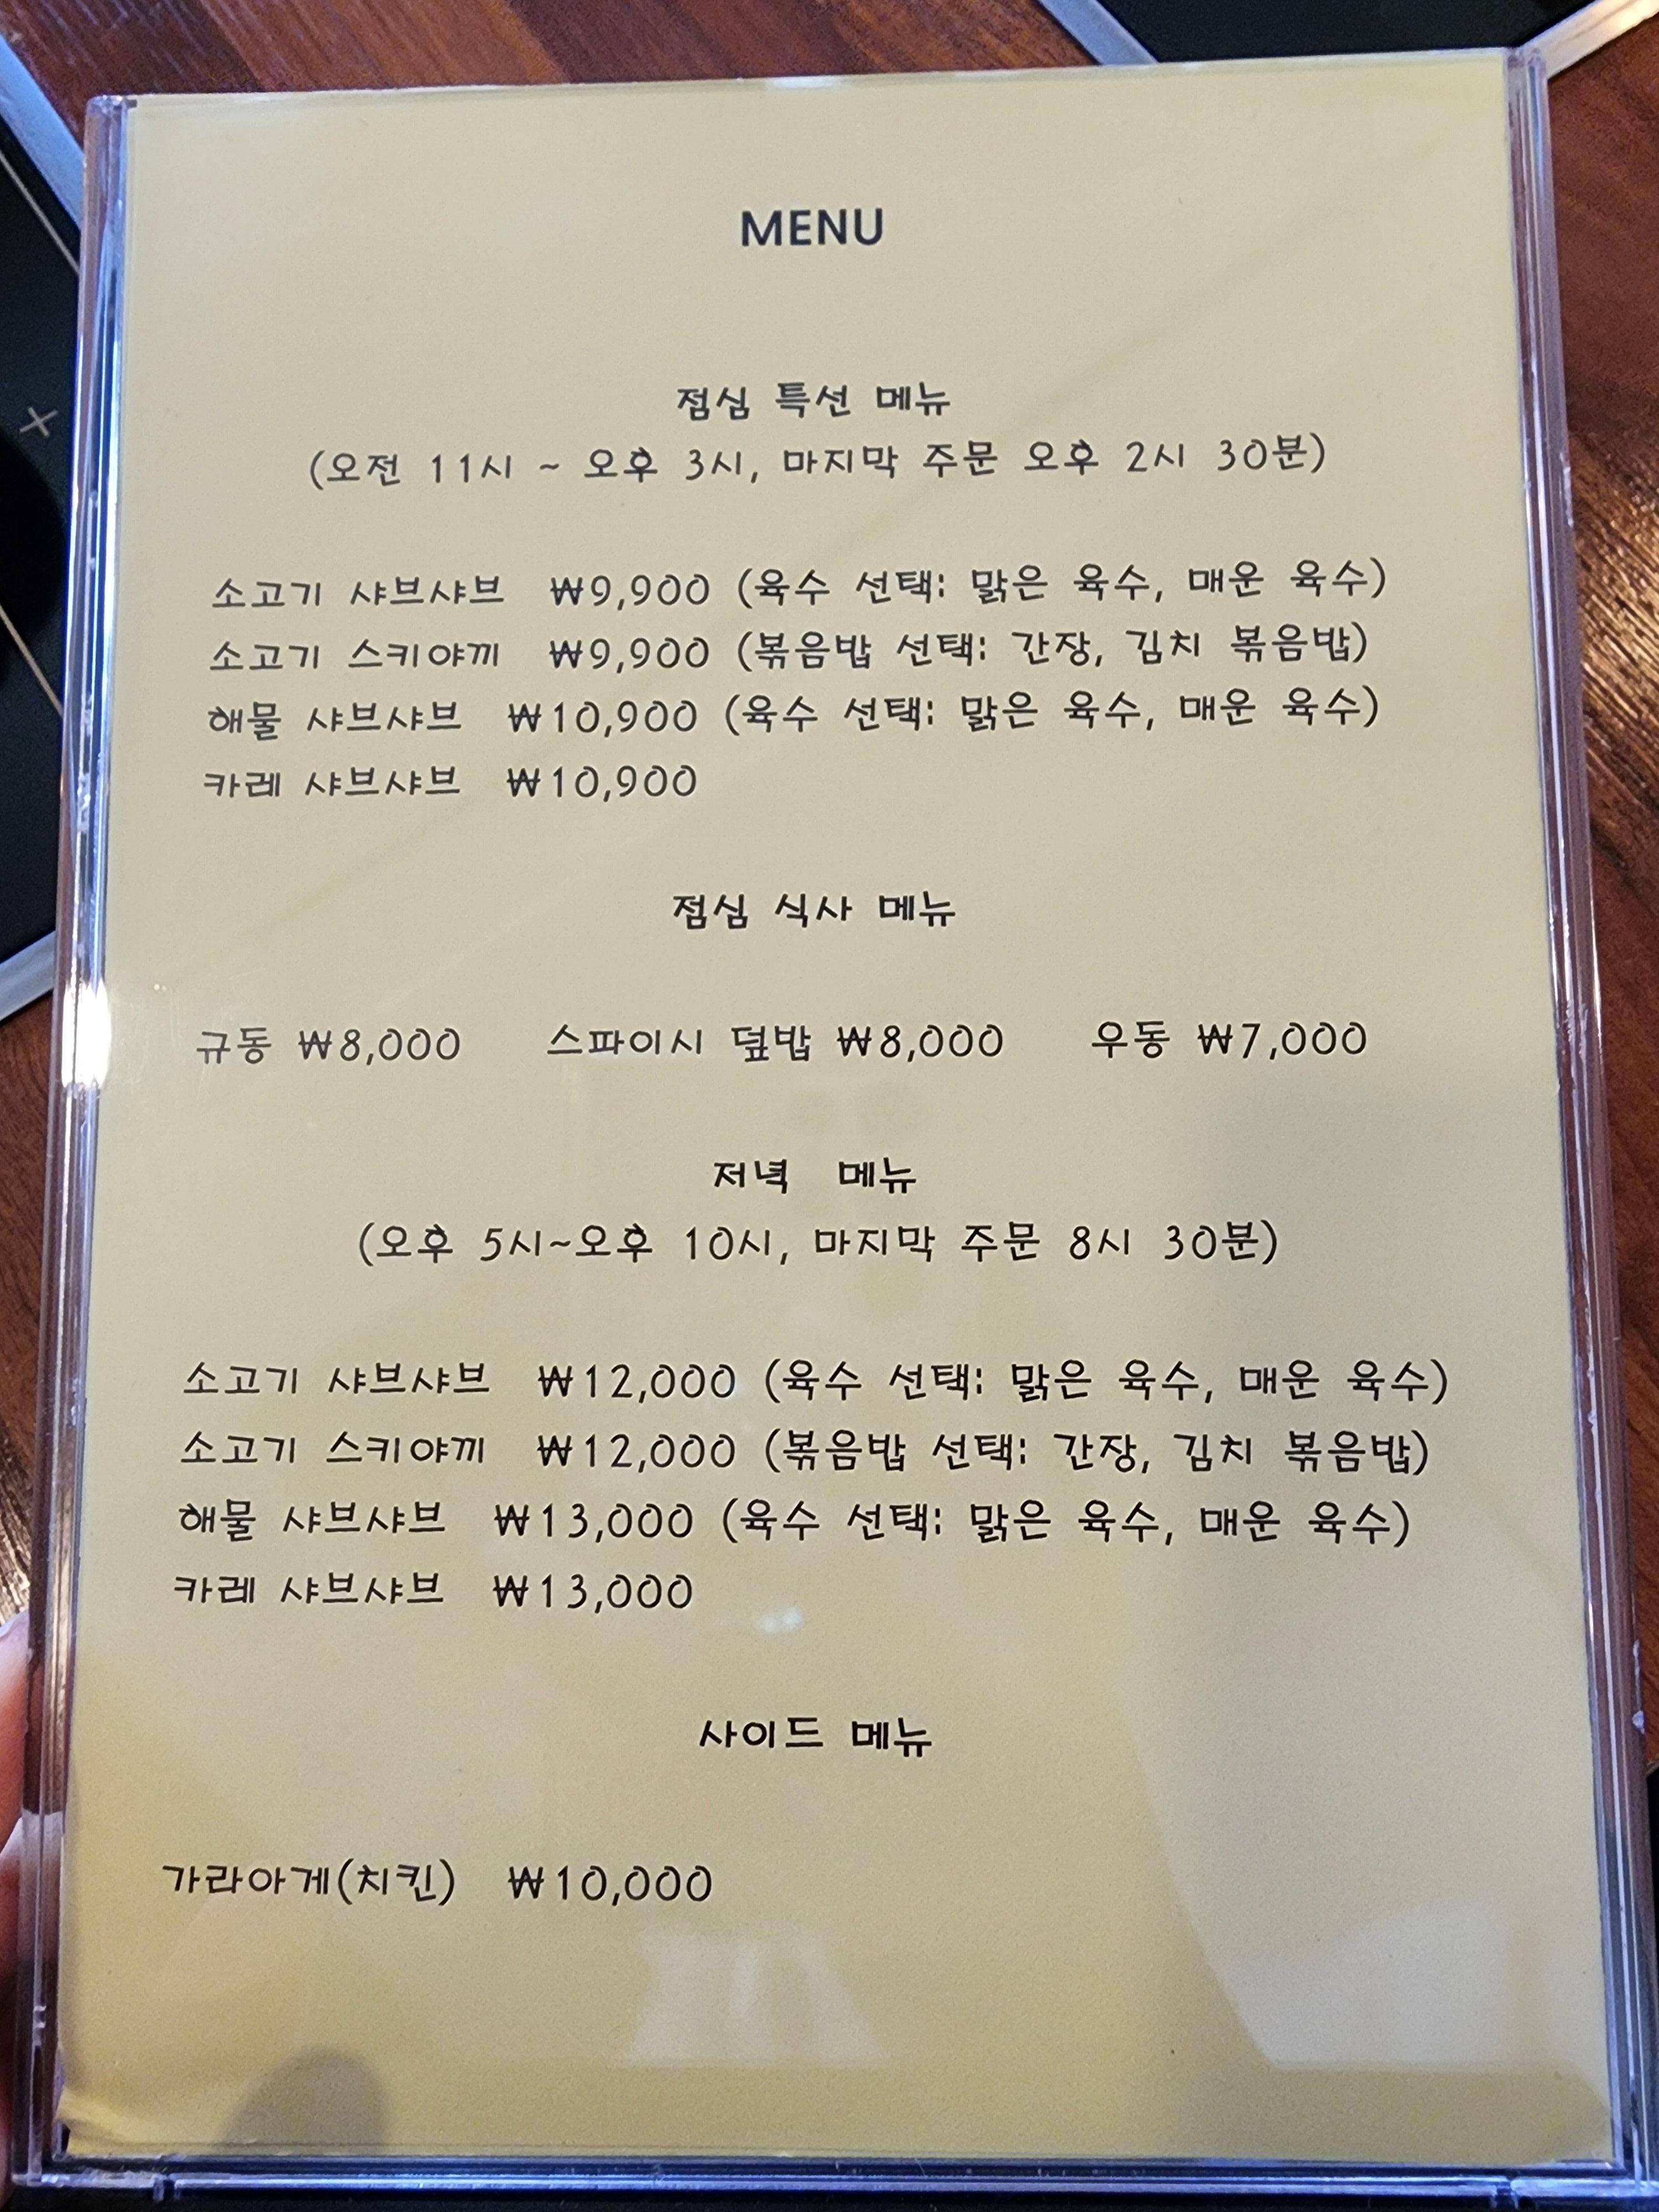 MENU
점심 특선 메뉴
(오전 11시 ~ 오후 3시, 마지막 주문 오후 2시 30분)
소고기 샤브샤브 ₩9,900 (육수 선택: 맑은 육수, 매운 육수)
소고기 스키야끼 ₩9,900 (볶음밥 선택: 간장, 김치 볶음밥)
해물 샤브샤브 ₩10,900 (육수 선택: 맑은 육수, 매운 육수)
카레 샤브샤브 ₩10,900
점심 식사 메뉴
규동 ₩8,000 스파이시 덮밥 ₩8,000 우동 ₩7,000
저녁 메뉴
(오후 5시~오후 10시, 마지막 주문 8시 30분)
소고기 샤브샤브 ₩12,000 (육수 선택: 맑은 육수, 매운 육수)
소고기 스키야끼 ₩12,000 (볶음밥 선택: 간장, 김치 볶음밥)
해물 샤브샤브 ₩13,000 (육수 선택: 맑은 육수, 매운 육수)
카레 샤브샤브 ₩13,000
사이드 메뉴
가라아게(치킨) ₩10,000